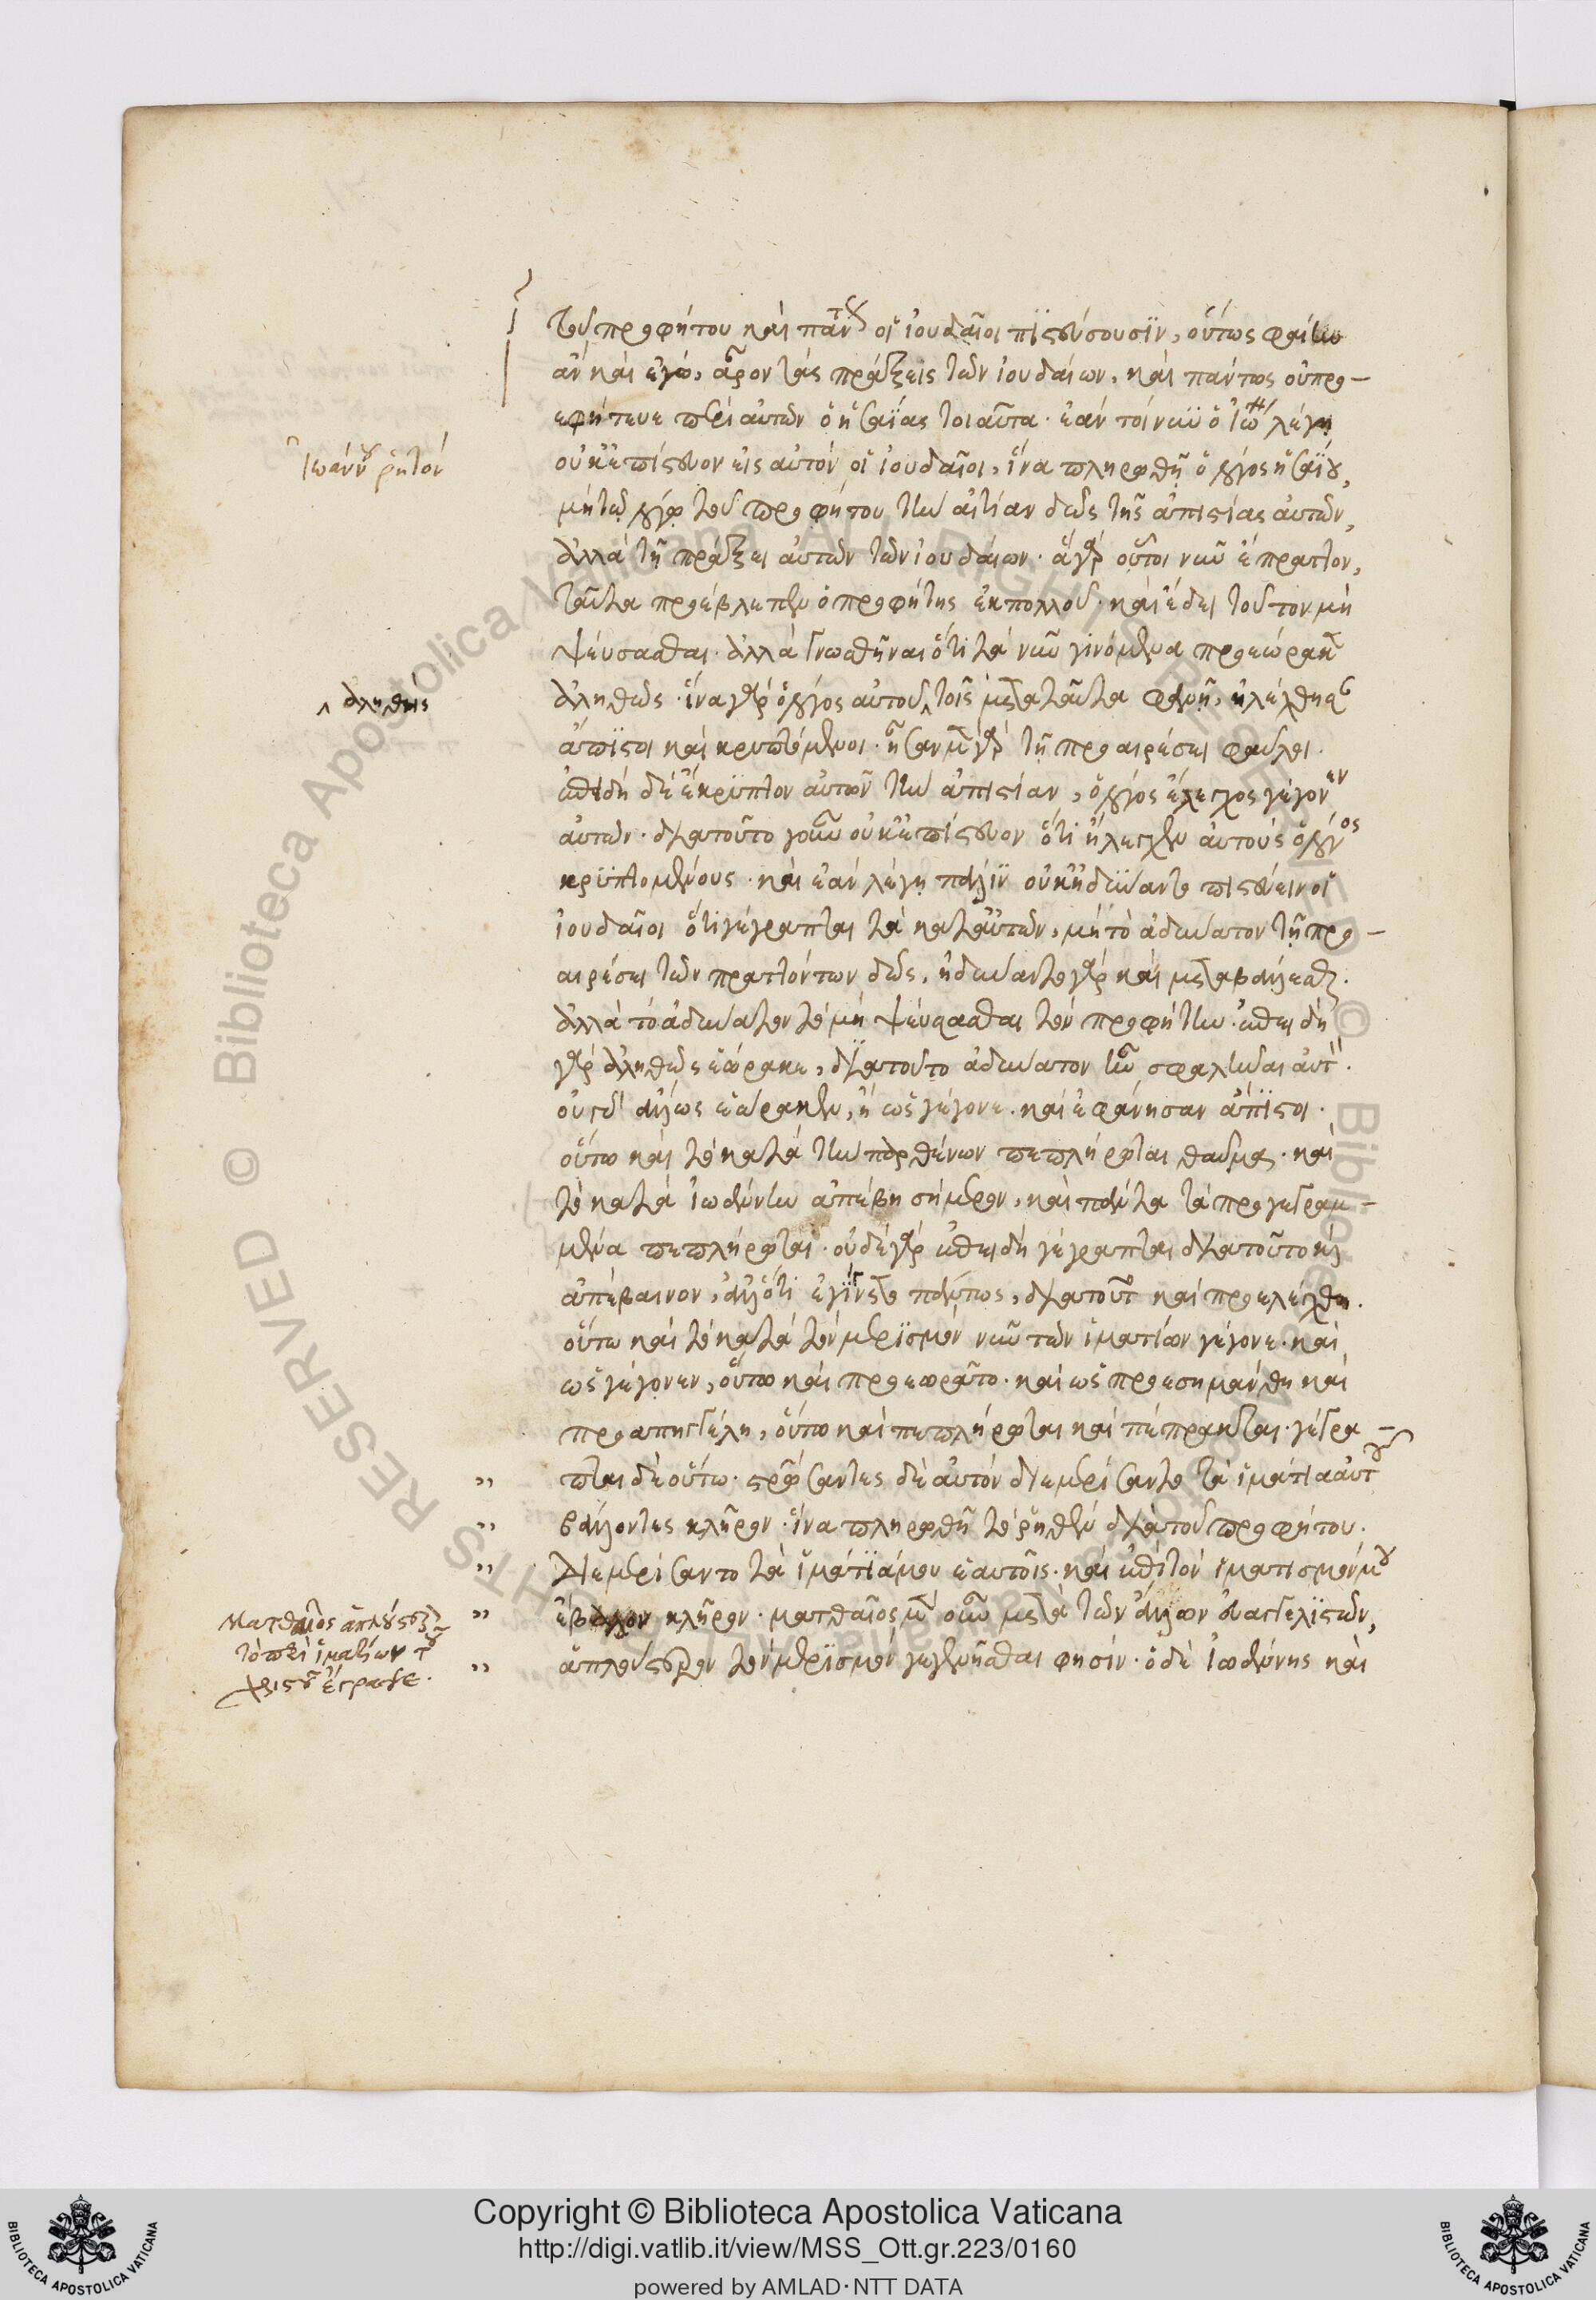 τοῦ προφήτου καὶ πάντες οἱ ἰουδαῖοι πιστεύσουσιν, οὕτως φαίην
ἂν καὶ ἐγώ, ἆρον τὰς πράξεις τῶν ἰουδαίων, καὶ πάντως οὐ προ-
εφήτευε περὶ αὐτῶν ὁ ἡσαΐας τοιαῦτα. ἐὰν τοίνυν ὁ ἰω λέγη
οὐκ ἐπίστευον εἰς αὐτὸν οἱ ἰουδαῖοι, ἵνα πληρωθῆ ὁ λόγος ἡσαΐου,
μὴ τῷ λόγῳ τοῦ προφήτου τὴν αἰτίαν δῷς τῆς ἀπιστίας αὐτῶν,
ἀλλὰ τῆ πράξει αὐτῶν τῶν ἰουδαίων. ἃ γὰρ οὗτοι νῦν ἔπραττον,
ταῦτα προέβλεπεν ὁ προφήτης ἐκ πολλοῦ. καὶ ἔδει τοῦτον μὴ
ψεύσασθαι. ἀλλὰ γνωσθῆναι ὅτι τὰ νῦν γινόμενα προεώρακεν
ἀληθῶς. ἵνα γὰρ ὁ λόγος αὐτοῦ ‸ τοῖς μετὰ ταῦτα φανῆ, ἠλέχθησαν
ἄπιστοι καὶ κρυπτόμενοι. ἦσαν μὲν γὰρ τῆ προαιρέσει φαῦλοι.
ἐπειδὴ δὲ ἔκρυπτον αὐτῶν τὴν ἀπιστίαν, ὁ λόγος ἔλεγχος γέγονεν
αὐτῶν. διὰ τοῦτο γοῦν οὐκ ἐπίστευον ὅτι ἤλεγχεν αὐτοὺς ὁ λόγος
κρυπτομένους. καὶ ἐὰν λέγη πάλιν οὐκ ἠδύναντο πιστεύειν οἱ
ἰουδαῖοι ὅτι γέγραπται τὰ κατ' αὐτῶν, μὴ τὸ ἀδύνατον τῆ προ-
αιρέσει τῶν πραττόντων δῷς, ἠδύναντο γὰρ καὶ μεταβάλλεσθαι.
ἀλλὰ τὸ ἀδύνατον τὸ μὴ ψεύσασθαι τὸν προφήτην. ἐπειδὴ
γὰρ ἀληθῶς ἑώρακε, διὰ τοῦτο ἀδύνατον ἦν σφαλῆναι αὐτόν.
οὐδ' ἄλλως ἑώρακεν, ἢ ὡς γέγονε. καὶ ἐφάνησαν ἄπιστοι.
οὕτω καὶ τὸ κατὰ τὴν παρθένων πεπλήρωται θαῦμα. καὶ
τὸ κατὰ ἰωάννην ἀπέβη σήμερον, καὶ πάντα τὰ προγεγραμ-
μένα πεπλήρωται. οὐδὲ γὰρ ἐπειδὴ γέγραπται διὰ τοῦτο καὶ
ἀπέβαινον, ἀλλ' ὅτι ἐγίνετο πάντως, διὰ τοῦτο καὶ προελέχθη.
οὕτω καὶ τὸ κατὰ τὸν μερισμὸν νῦν τῶν ἱματίων γέγονε. καὶ
ὡς γέγονεν, οὕτω καὶ προεωρᾶτο. καὶ ὡς προεσημάνθη καὶ
προαπηγγέλη, οὕτω καὶ πεπλήρωται καὶ πέπρακται. γέγρα-
" πται δὲ οὕτω. σταυρώσαντες δὲ αὐτὸν διεμερίσαντο τὰ ἱμάτια αὐτοῦ
" βάλλοντες κλῆρον. ἵνα πληρωθῆ τὸ ῥηθὲν διὰ τοῦ προφήτου.
" Διεμερίσαντο τὰ ἱμάτιά μου ἑαυτοῖς. καὶ ἐπὶ τὸν ἱματισμόν μου
" ἔβαλον κλῆρον. ματθαῖος μὲν οὖν μετὰ τῶν ἄλλων εὐαγγελιστῶν,
" ἁπλούστερον τὸν μερισμὸν γεγενῆσθαι φησίν. ὁ δὲ ἰωάννης καὶ
Ἰωάννου ῥητόν
‸ ἀληθὴς
Ματθαῖος ἁπλούστερον
τὸ περὶ ἱματίων τοῦ
χριστοῦ ἔγραψε.
Copyright © Biblioteca Apostolica Vaticana
http://digi.vatlib.it/view/MSS_Ott.gr.223/0160
powered by AMLAD·NTT DATA
BIBLIOTECA APOSTOLICA VATICANA
BIBLIOTECA APOSTOLICA VATICANA